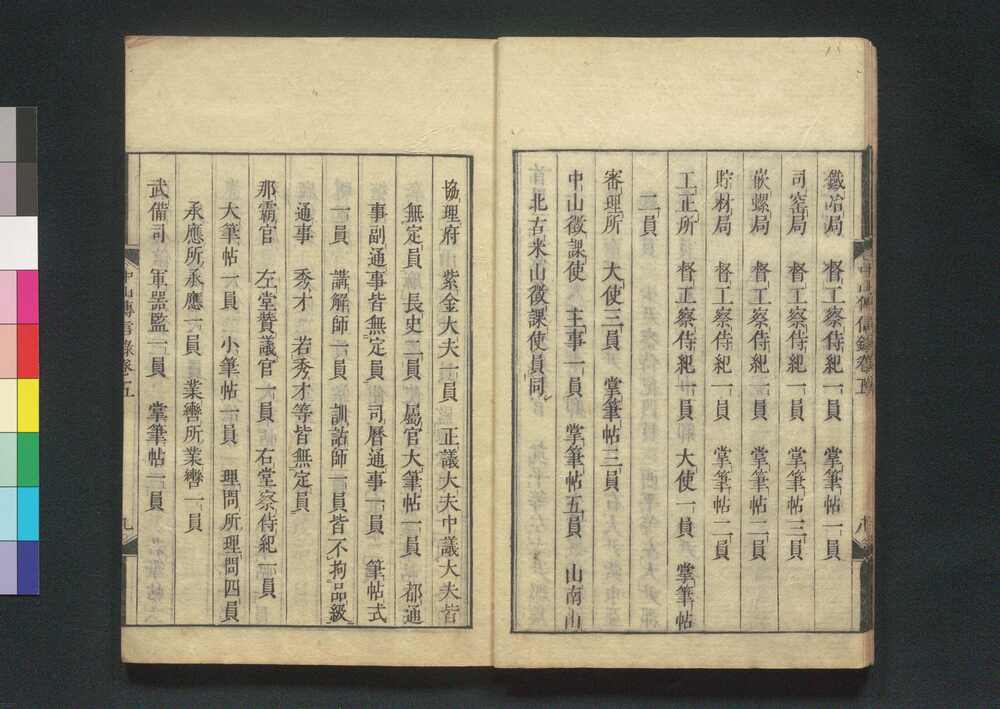 鐵冶局　督工察侍紀一員　掌筆帖一員
司窑局　督工察侍紀一員　掌筆帖三員
嵌螺局　督工察侍紀一員　掌筆帖二員
貯材局　督工察侍紀一員　掌筆帖二員
工正所　督正察侍紀一員　大使一員　掌筆帖
二員
審理所　大使三員　掌筆帖三員
中山徵課使　主事一員　掌筆帖五員　山南山
首北古米山徵課使員同
協理府　紫金大夫一員　正議大夫中議大夫皆
無定員　長史二員　屬官大筆帖一員　都通
事副通事皆無定員　司曆通事一員　筆帖式
一員　講解師一員　訓詁師一員皆不拘品級
通事　秀才　若秀才等皆無定員
那霸官　左堂贊議官一員　右堂察侍紀一員
大筆帖一員　小筆帖一員　理問所理問四員
承應所承應一員　業轡所業轡一員
武備司　軍器監一員　掌筆帖一員
中山傳信錄卷五　九